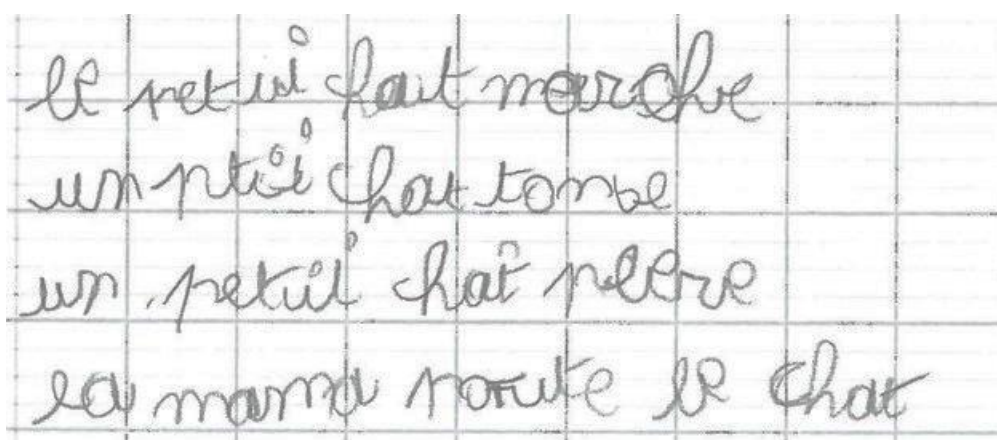 le petit chat marche
un ptit chat tombe
un petit chat pleere
la mama porute le chat